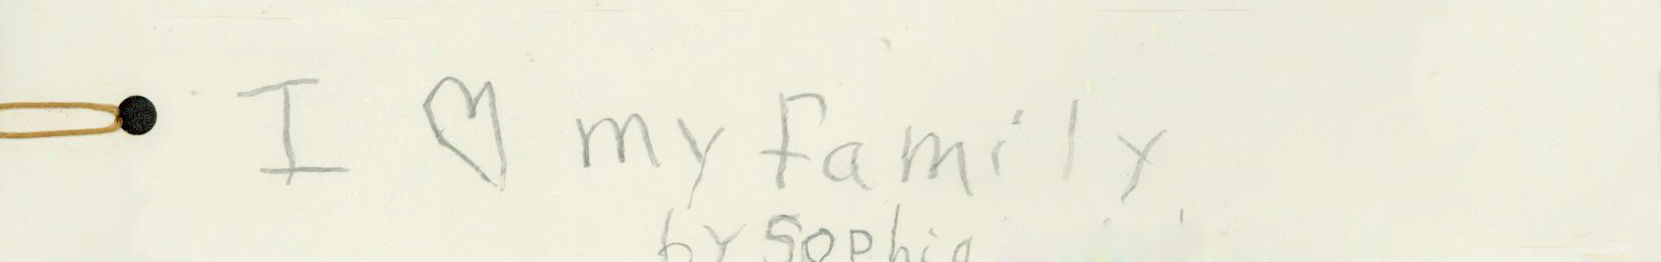 I ♡ my family
by Sophia